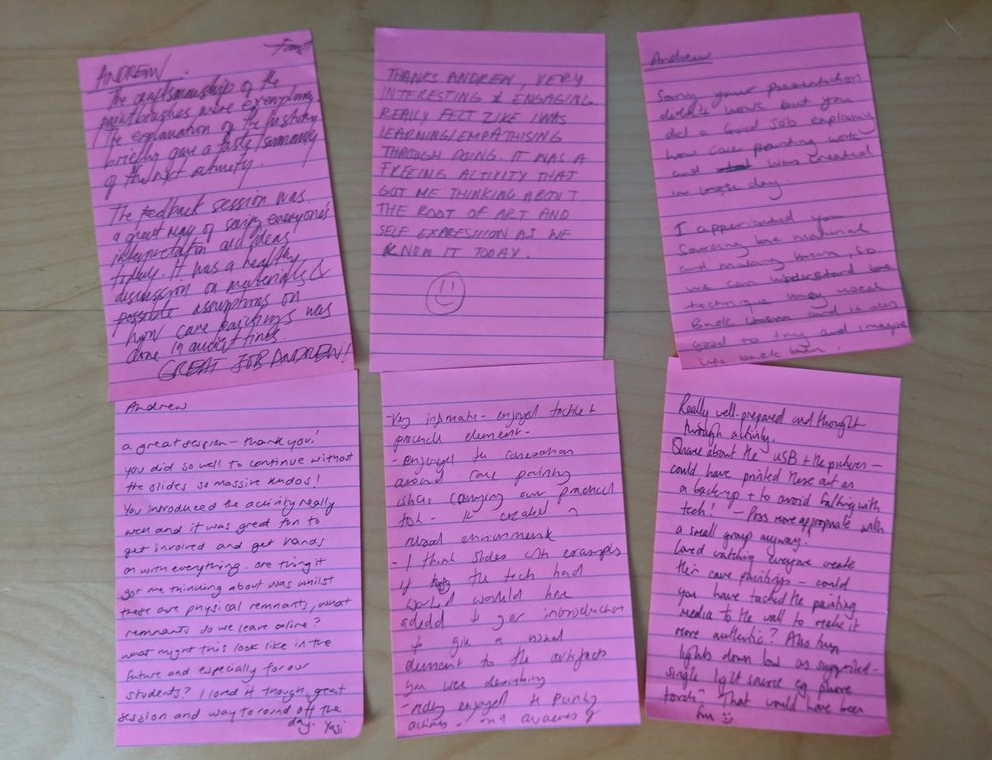 ANDREW
The craftsmanship of the
paintbrushes were exemplary
the explanation of the history
briefly gave a taste/summary
of the next activity.
The feedback session was
a great way of seeing everyone's
interpretation and ideas
It was a healthy
discussion on materials &
possible assumptions on
how cave paintings was
done in ancient times.
GREAT JOB ANDREW!
THANKS ANDREW, VERY
INTERESTING & ENGAGING.
REALLY FELT LIKE I WAS
LEARNING/EMPATHISING
THROUGH DOING. IT WAS A
FREEING ACTIVITY THAT
GOT ME THINKING ABOUT
THE ROOT OF ART AND
SELF EXPRESSION AS WE
KNOW IT TODAY.
Andrew
Sorry your presentation
didn't work but you
did a Good job explaining
how cave painting work
and was created
in day.
I you
Sourcing the material
and making them, so
we can understand the
technique they used
Back then and it was
Good to try and imagine
back then.
Andrew
a great session - thank you!
you did so well to continue without
the slides so massive kudos!
You introduced the activity really
well and it was great fun to
get involved and get hands
on with everything. one thing it
got me thinking about was whilst
these are physical remnants, what
remnants do we leave online?
what might this look like in the
future and especially for our
students? I loved it though, great
session and way to round off the
day.
- Very intimate - enjoyed
element -
- Enjoyed the conversation
around cave painting
whilst carrying our practical
task - it created a
relaxed environment
- I think slides with examples
if the tech had
worked would have
added to your introduction
to give a visual
element to the artefacts
you were describing
- really enjoyed the painting
Really well-prepared and thought
through activity.
Shame about the USB + the pictures -
could have printed these out as
a back-up + to avoid faffing with
tech! - Poss more appropriate with
a small group anyway.
Loved watching everyone create
their cave paintings - could
you have tacked the painting
media to the wall to make it
more authentic? Also turn
lights down low as suggested -
single light source eg phone
torch? That would have been
fun